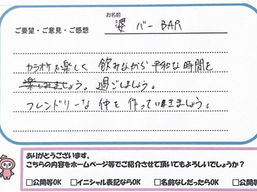 お名前
婆 バー BAR
ご要望・ご意見・ご感想
カラオケを楽しく 飲みながら 平和な時間を
過ごしましょう。
フレンドリーな 仲を作っていきましょう。
ありがとうございます。
こちらの内容をホームページ等でご紹介させて頂いてもよろしいでしょうか?
□公開等OK □イニシャル表記ならOK □名前なしだったらOK □公開等